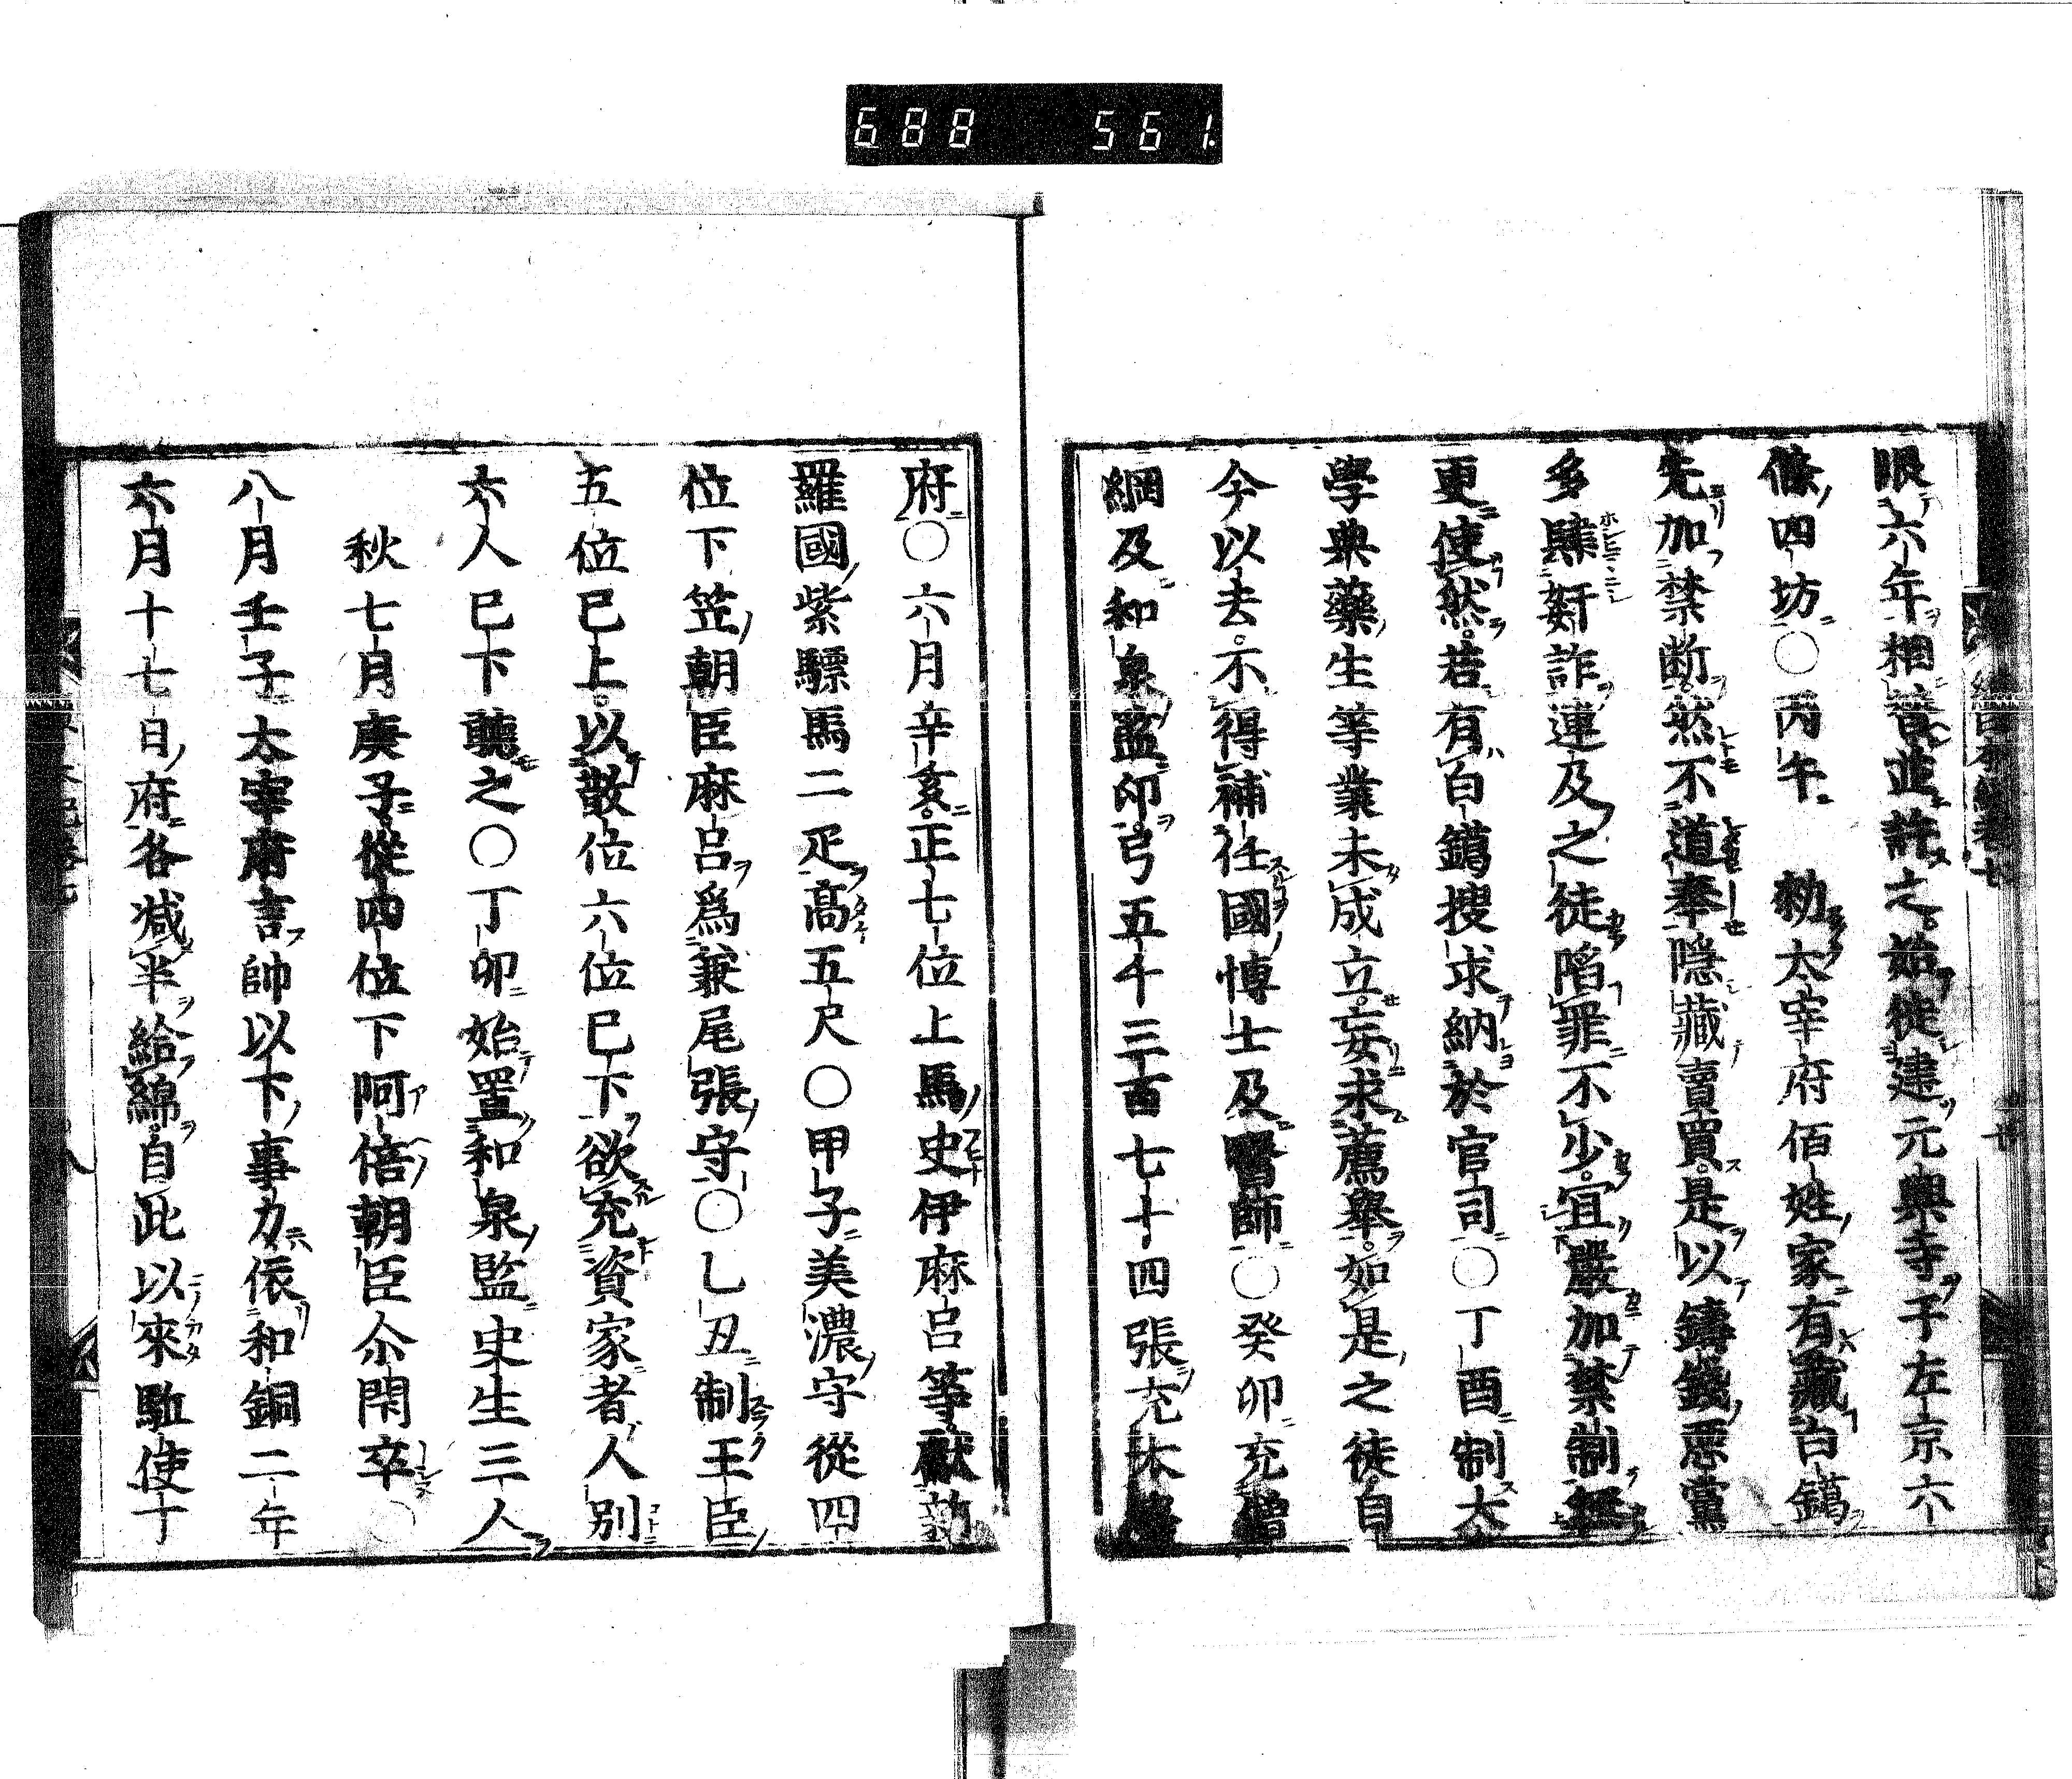 688 561.
眼六年相替並許之始徙建元興寺于左京六
條四坊〇丙午　勑太宰府佰姓家有藏白鑞
先加禁断然不道奉隠藏賣買是以鑄錢悪黨
多肆奸詐連及之徒陷罪不少宜嚴加禁制無
更使然若有白鑞搜求納於官司〇丁酉制大
學典藥生等業未成立妄求薦舉如是之徒自
今以去不得補任國博士及醫師〇癸卯充僧
綱及和泉監印弓五千三百七十四張充太宰
府〇六月辛亥正七位上馬史伊麻呂等獻新
羅國紫驃馬二疋高五尺〇甲子美濃守從四
位下笠朝臣麻呂爲兼尾張守〇乙丑制王臣
五位已上以散位六位已下欲充資家者人別
六人已下聽之〇丁卯始置和泉監史生三人
秋七月庚子從四位下阿倍朝臣尒閇卒〇
八月壬子太宰府言帥以下事力依和銅二年
六月十七日府各减半給綿自此以來駈使丁